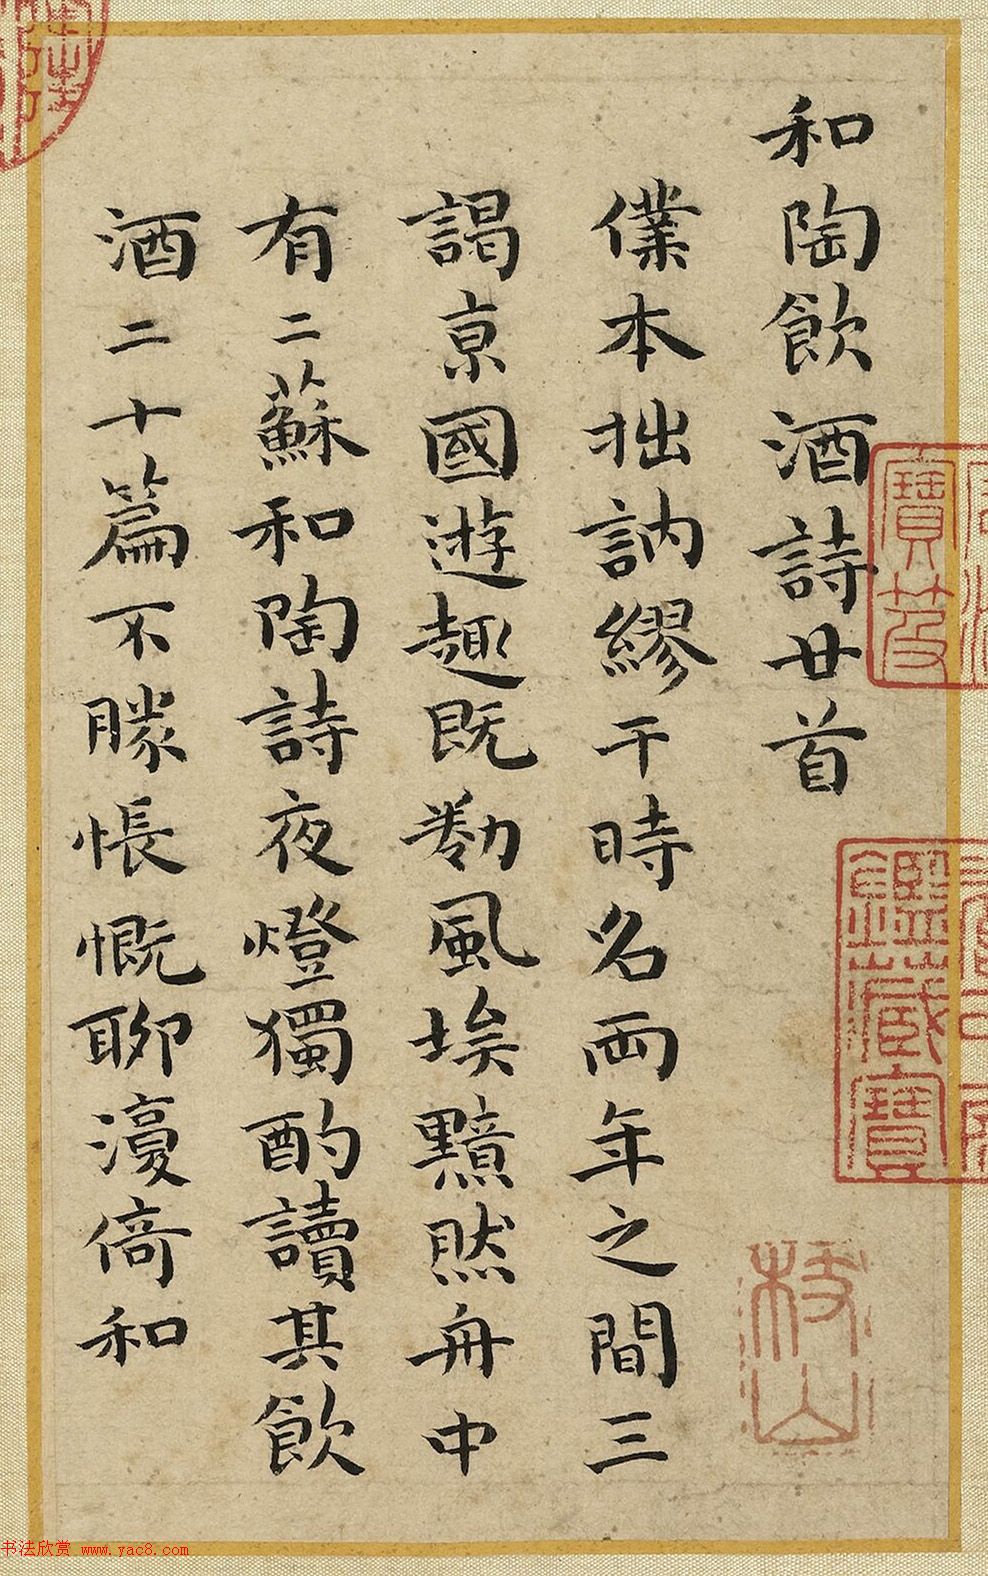 和陶飲酒詩廿首
僕本拙訥繆干時名兩年之間三
謁京國遊趣既勌風埃黯然舟中
有二蘇和陶詩夜燈獨酌讀其飲
酒二十篇不勝悵慨聊濅倚和
寶笈
鑑藏寶
枝山
书法欣赏 www.yac8.com